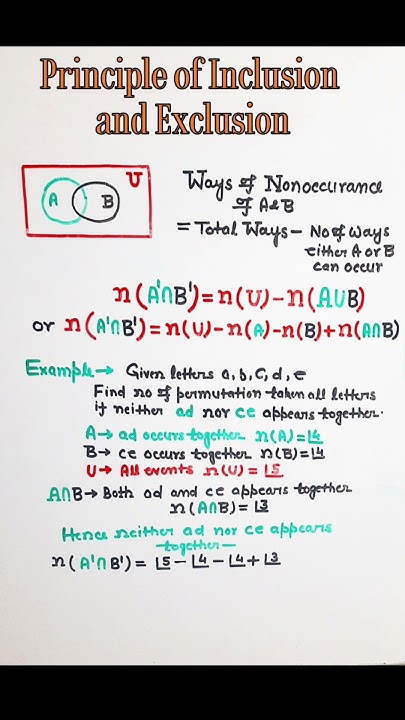 Principle of Inclusion
and Exclusion
U
A B
Ways of Nonoccurance
of A&B
= Total Ways - No of ways
either A or B
can occur
n(A'∩B') = n(U) - n(A∪B)
or n(A'∩B') = n(U) - n(A) - n(B) + n(A∩B)
Example → Given letters a, b, c, d, e
Find no of permutation taken all letters
if neither ad nor ce appears together.
A → ad occurs together n(A) = ⌊4
B → ce occurs together n(B) = ⌊4
U → All events n(U) = ⌊5
A∩B → Both ad and ce appears together
n(A∩B) = ⌊3
Hence neither ad nor ce appears
together
n(A'∩B') = ⌊5 - ⌊4 - ⌊4 + ⌊3